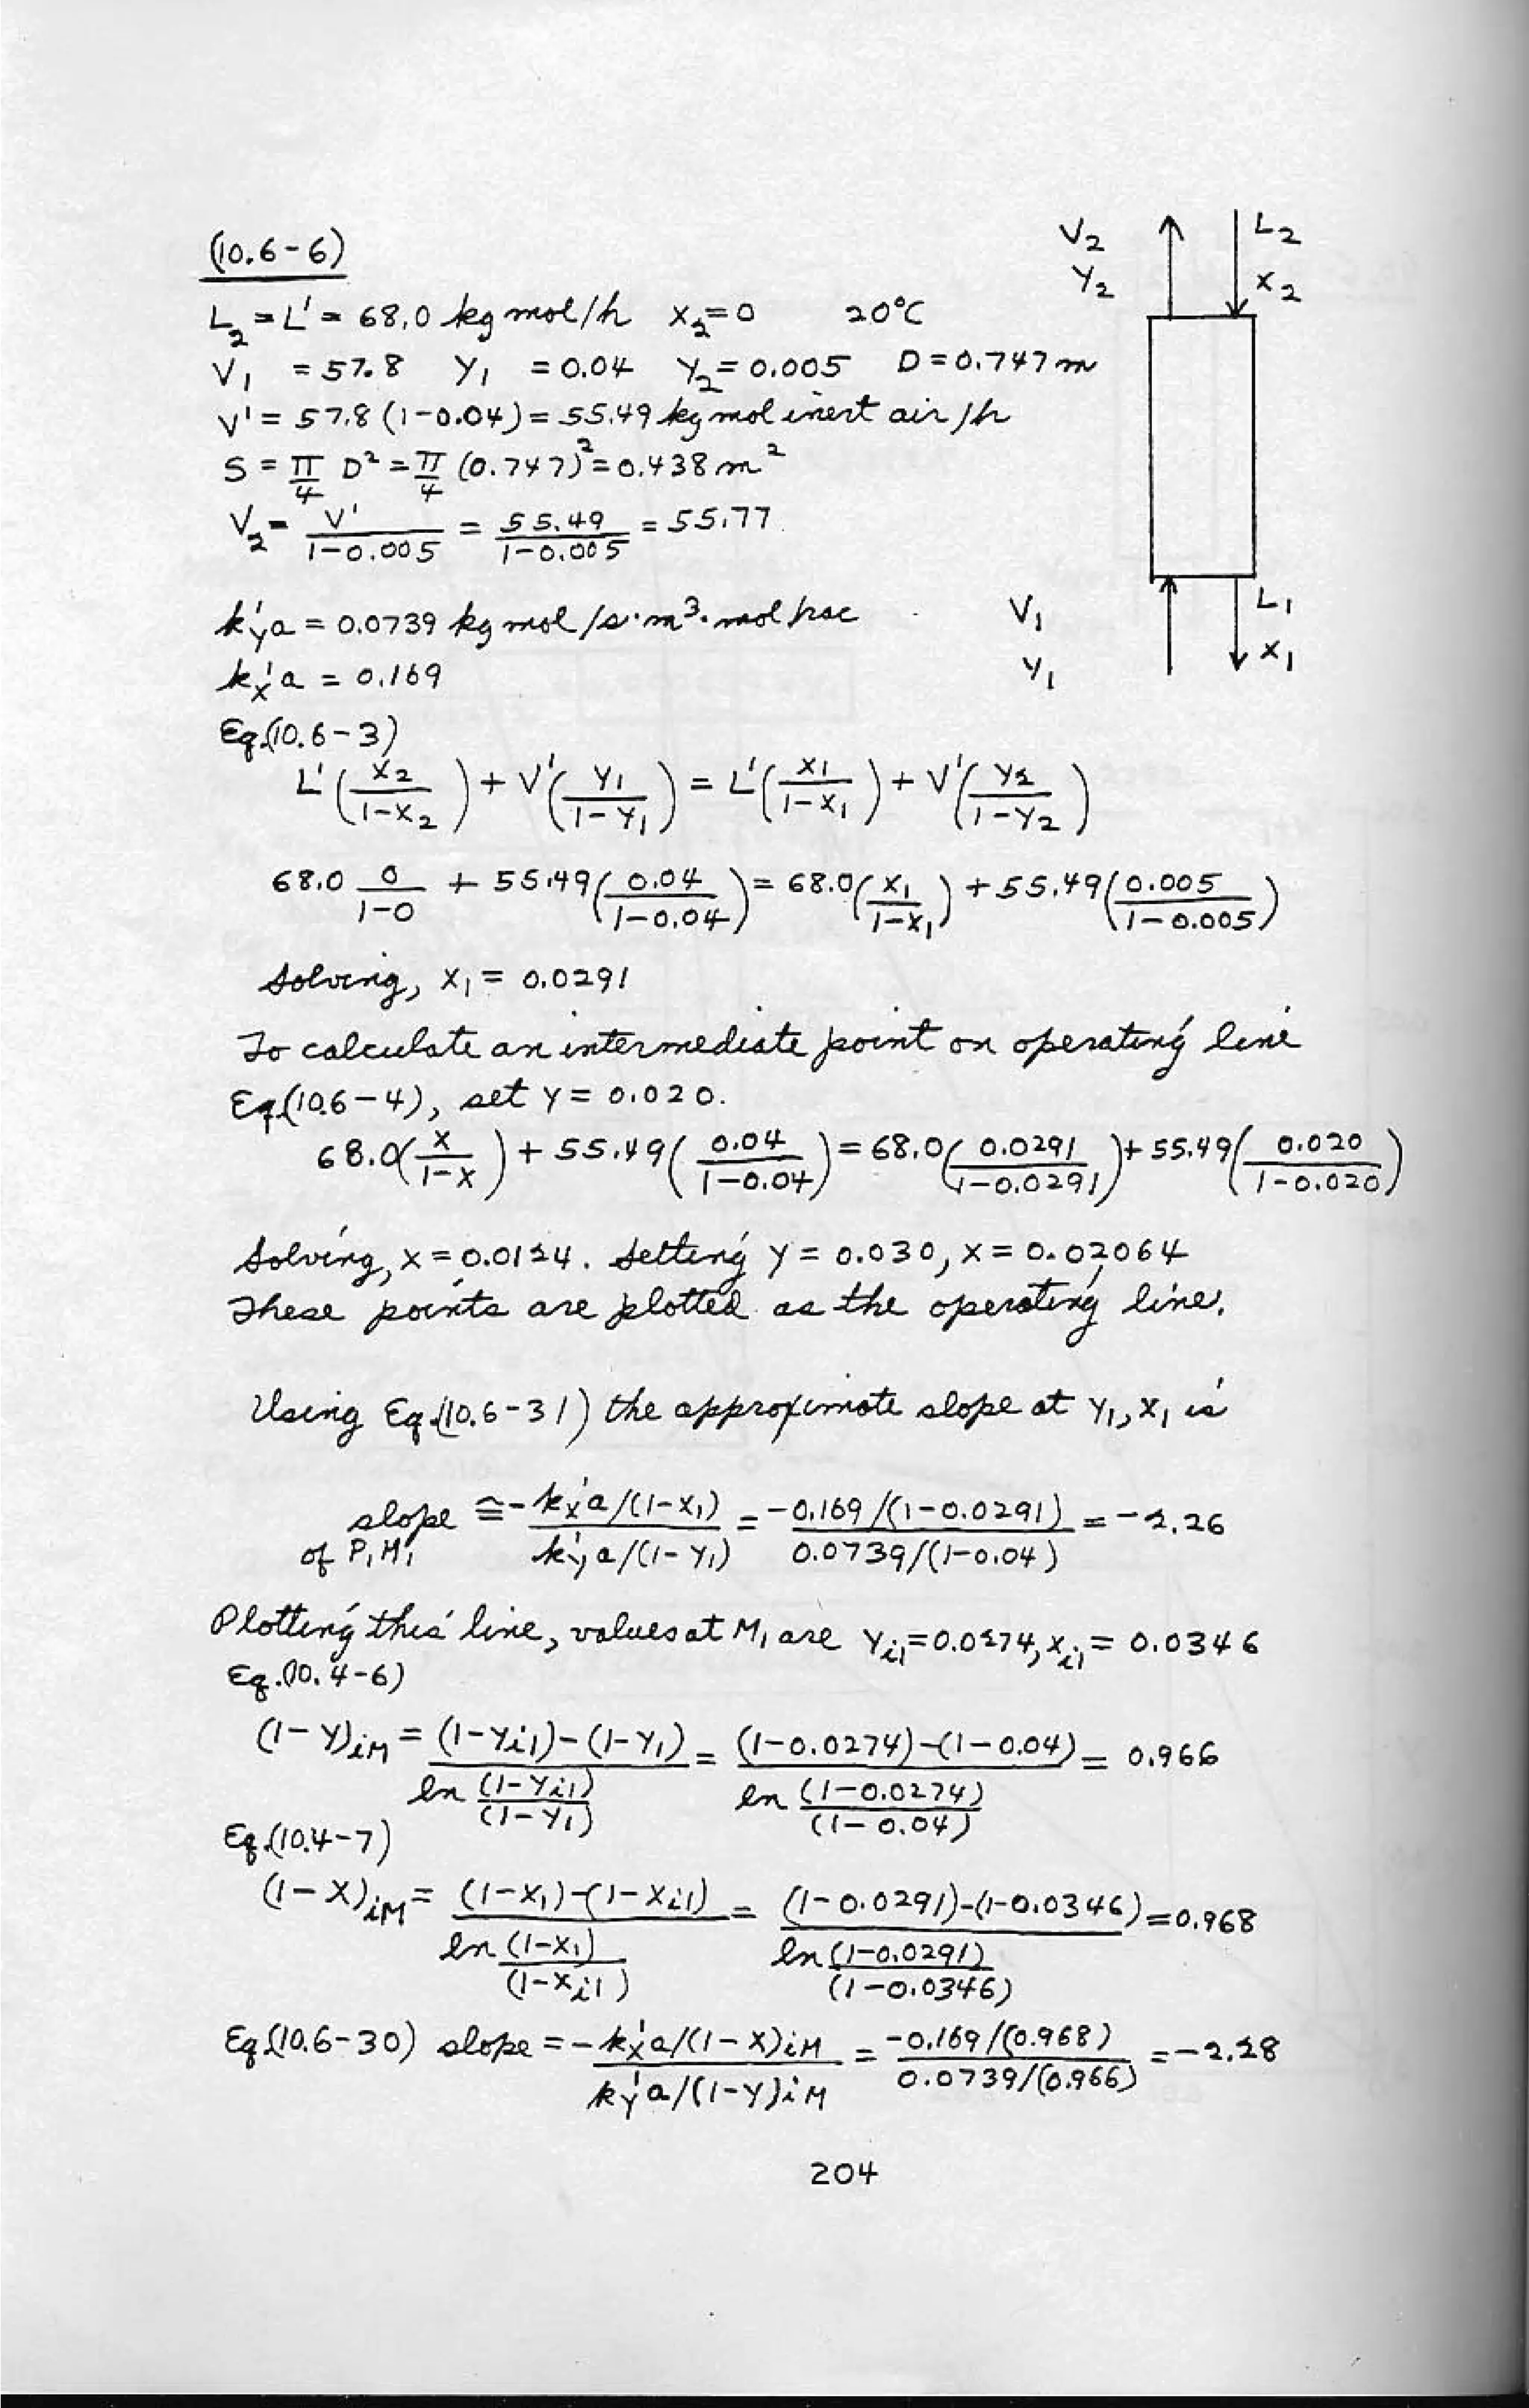 (10.6-6)
L₂ = L' = 68,0 kg mol/h x₂ = 0 20°C
V₁ = 57.8 y₁ = 0.04 y₂ = 0.005 D = 0.747 m
V' = 57.8 (1-0.04) = 55.49 kg mol inert air/h
S = π/4 D² = π/4 (0.747)² = 0.438 m²
V₂ = V'/(1-0.005) = 55.49/(1-0.005) = 55.77
V₂ L₂
y₂ x₂
k'ya = 0.0739 kg mol/s·m³·mol frac
k'xa = 0.169
V₁ L₁
y₁ x₁
Eq.(10.6-3)
L'(x₂/(1-x₂)) + V'(y₁/(1-y₁)) = L'(x₁/(1-x₁)) + V'(y₂/(1-y₂))
68.0 0/(1-0) + 55.49(0.04/(1-0.04)) = 68.0(x₁/(1-x₁)) + 55.49(0.005/(1-0.005))
Solving, x₁ = 0.0291
To calculate an intermediate point on operating line
Eq.(10.6-4), set y = 0.020.
68.0(x/(1-x)) + 55.49(0.04/(1-0.04)) = 68.0(0.0291/(1-0.0291)) + 55.49(0.020/(1-0.020))
Solving, x = Setting y = 0.030, x = 0.02064
These points are plotted as the operating line.
Using Eq.(10.6-31) the approximate slope at y₁, x₁ is
slope of P₁M₁ ≅ - k'xa/(1-x₁) / k'ya/(1-y₁) = -0.169/(1-0.0291) / 0.0739/(1-0.04) = -2.26
Plotting this line, values at M₁ are yi1 = 0.0274, xi1 = 0.0346
Eq.(10.4-6)
(1-y)iM = ((1-yi1)-(1-y₁)) / ln (1-yi1)/(1-y₁) = ((1-0.0274)-(1-0.04)) / ln (1-0.0274)/(1-0.04) = 0.966
Eq.(10.4-7)
(1-x)iM = ((1-x₁)-(1-xi1)) / ln (1-x₁)/(1-xi1) = ((1-0.0291)-(1-0.0346)) / ln (1-0.0291)/(1-0.0346) = 0.968
Eq.(10.6-30) slope = - k'xa/(1-x)iM / k'ya/(1-y)iM = -0.169/(0.968) / 0.0739/(0.966) = -2.28
204